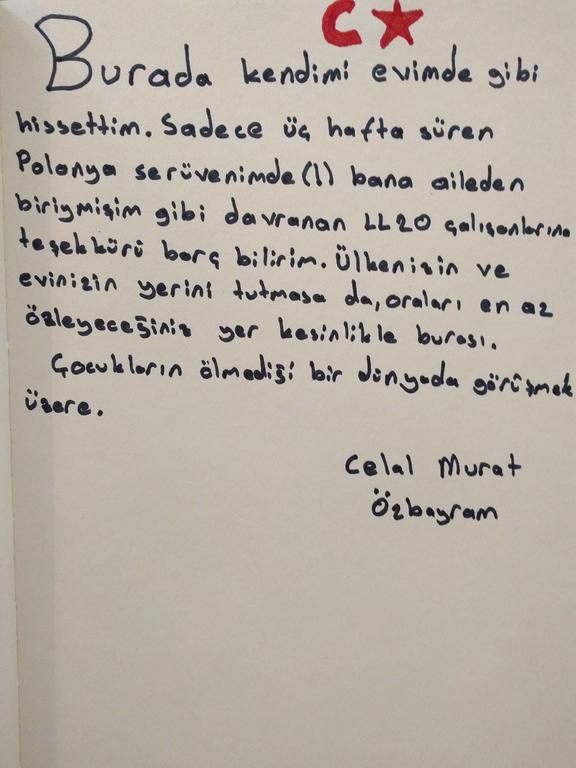 Burada kendimi evimde gibi
hissettim. Sadece üç hafta süren
Polonya serüvenimde(!) bana aileden
biriymişim gibi davranan LL20 çalışanlarına
teşekkürü borç bilirim. Ülkenizin ve
evinizin yerini tutmasa da, oraları en az
özleyeceğiniz yer kesinlikle burası.
Çocukların ölmediği bir dünyada görüşmek
üzere.
Celal Murat
Özbayram